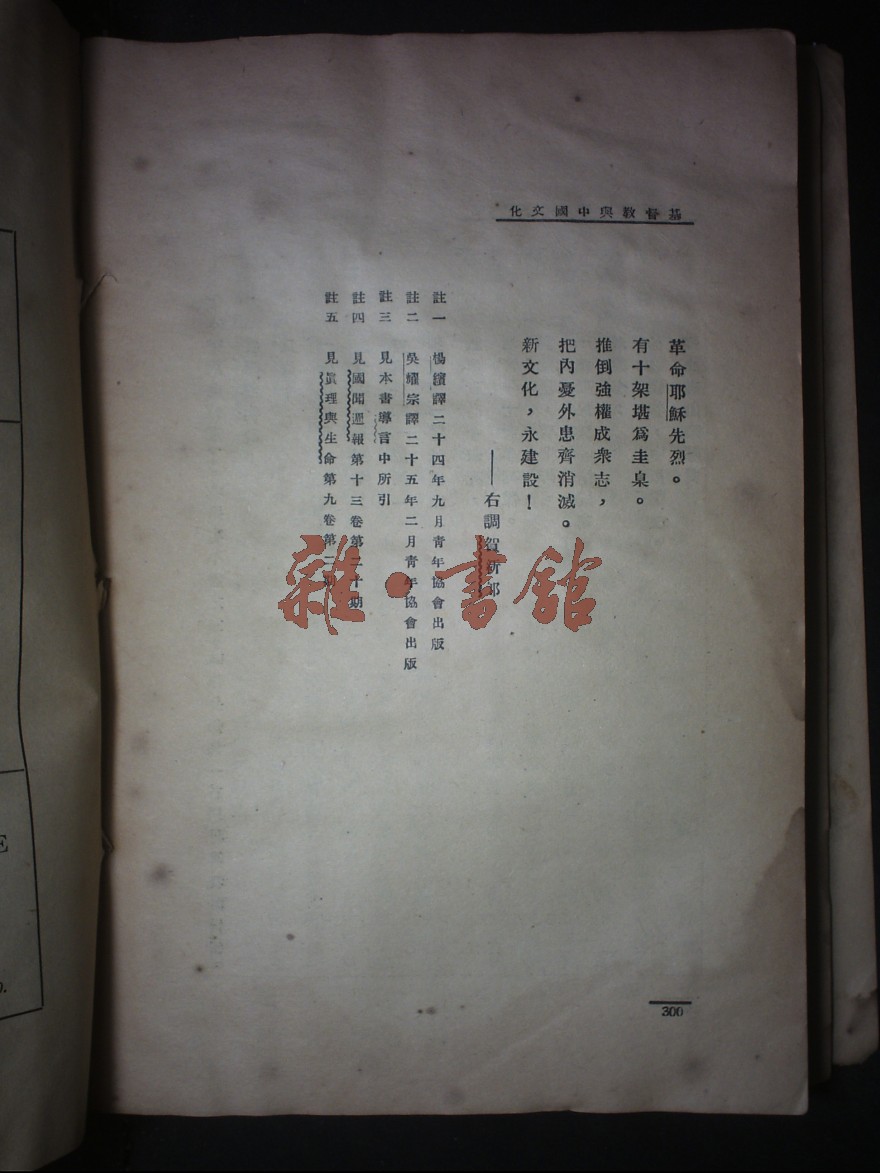 基督教與中國文化
革命耶穌先烈。
有十架堪爲圭臬。
推倒強權成衆志，
把內憂外患齊消滅。
新文化，永建設！
——右調賀新郎
註一　楊繽譯二十四年九月青年協會出版
註二　吳耀宗譯二十五年二月青年協會出版
註三　見本書導言中所引
註四　見國聞週報第十三卷第二十期
註五　見眞理與生命第九卷第二期
300
雜·書館
E